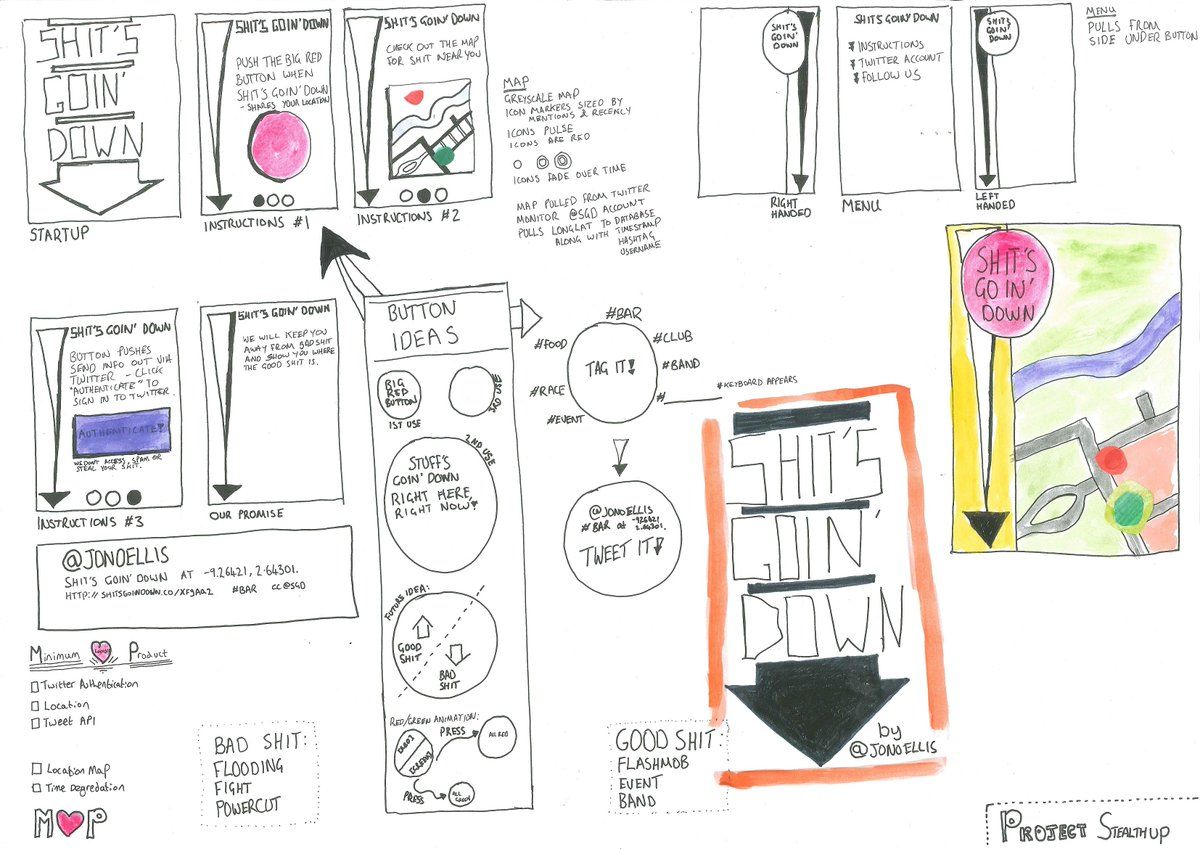 SHIT'S
GOIN'
DOWN
STARTUP
SHIT'S GOIN' DOWN
PUSH THE BIG RED
BUTTON WHEN
SHIT'S GOIN' DOWN
- SHARES YOUR LOCATION
INSTRUCTIONS #1
SHIT'S GOIN' DOWN
CHECK OUT THE MAP
FOR SHIT NEAR YOU
INSTRUCTIONS #2
MAP
GREYSCALE MAP
ICON MARKERS SIZED BY
MENTIONS & RECENCY
ICONS PULSE
ICONS ARE RED
ICONS FADE OVER TIME
MAP PULLED FROM TWITTER
MONITOR @SGD ACCOUNT
PULLS LONGLAT TO DATABASE
ALONG WITH TIMESTAMP
HASHTAG
USERNAME
SHIT'S
GOIN'
DOWN
RIGHT
HANDED
SHITS GOIN' DOWN
INSTRUCTIONS
TWITTER ACCOUNT
FOLLOW US
MENU
SHIT'S
GOIN'
DOWN
LEFT
HANDED
MENU
PULLS FROM
SIDE UNDER BUTTON
SHIT'S GOIN' DOWN
BUTTON PUSHES
SEND INFO OUT VIA
TWITTER - CLICK
"AUTHENTICATE" TO
SIGN IN TO TWITTER.
AUTHENTICATE!
WE DONT ACCESS, SPAM OR
STEAL YOUR SHIT.
INSTRUCTIONS #3
SHIT'S GOIN' DOWN
WE WILL KEEP YOU
AWAY FROM BAD SHIT
AND SHOW YOU WHERE
THE GOOD SHIT IS.
OUR PROMISE
BUTTON
IDEAS
BIG
RED
BUTTON
1ST USE
3RD USE
2ND USE
STUFF'S
GOIN' DOWN
RIGHT HERE,
RIGHT NOW!
FUTURE IDEA:
GOOD
SHIT
BAD
SHIT
RED/GREEN ANIMATION:
PRESS
ALL RED
PRESS
ALL GREEN
#BAR
#FOOD
#CLUB
TAG IT!
#BAND
#RACE
#EVENT
#
#KEYBOARD APPEARS
@JONOELLIS
#BAR AT -9.26421,
2.64301.
TWEET IT!
SHIT'S
GOIN'
DOWN
by
@JONOELLIS
SHIT'S
GOIN'
DOWN
@JONOELLIS
SHIT'S GOIN' DOWN AT -9.26421, 2.64301.
HTTP://SHITSGOINDOWN.CO/XF9AA2 #BAR CC @SGD
Minimum Product
Twitter Authentication
Location
Tweet API
Location Map
Time Degredation
M P
BAD SHIT:
FLOODING
FIGHT
POWERCUT
GOOD SHIT:
FLASHMOB
EVENT
BAND
PROJECT STEALTHUP